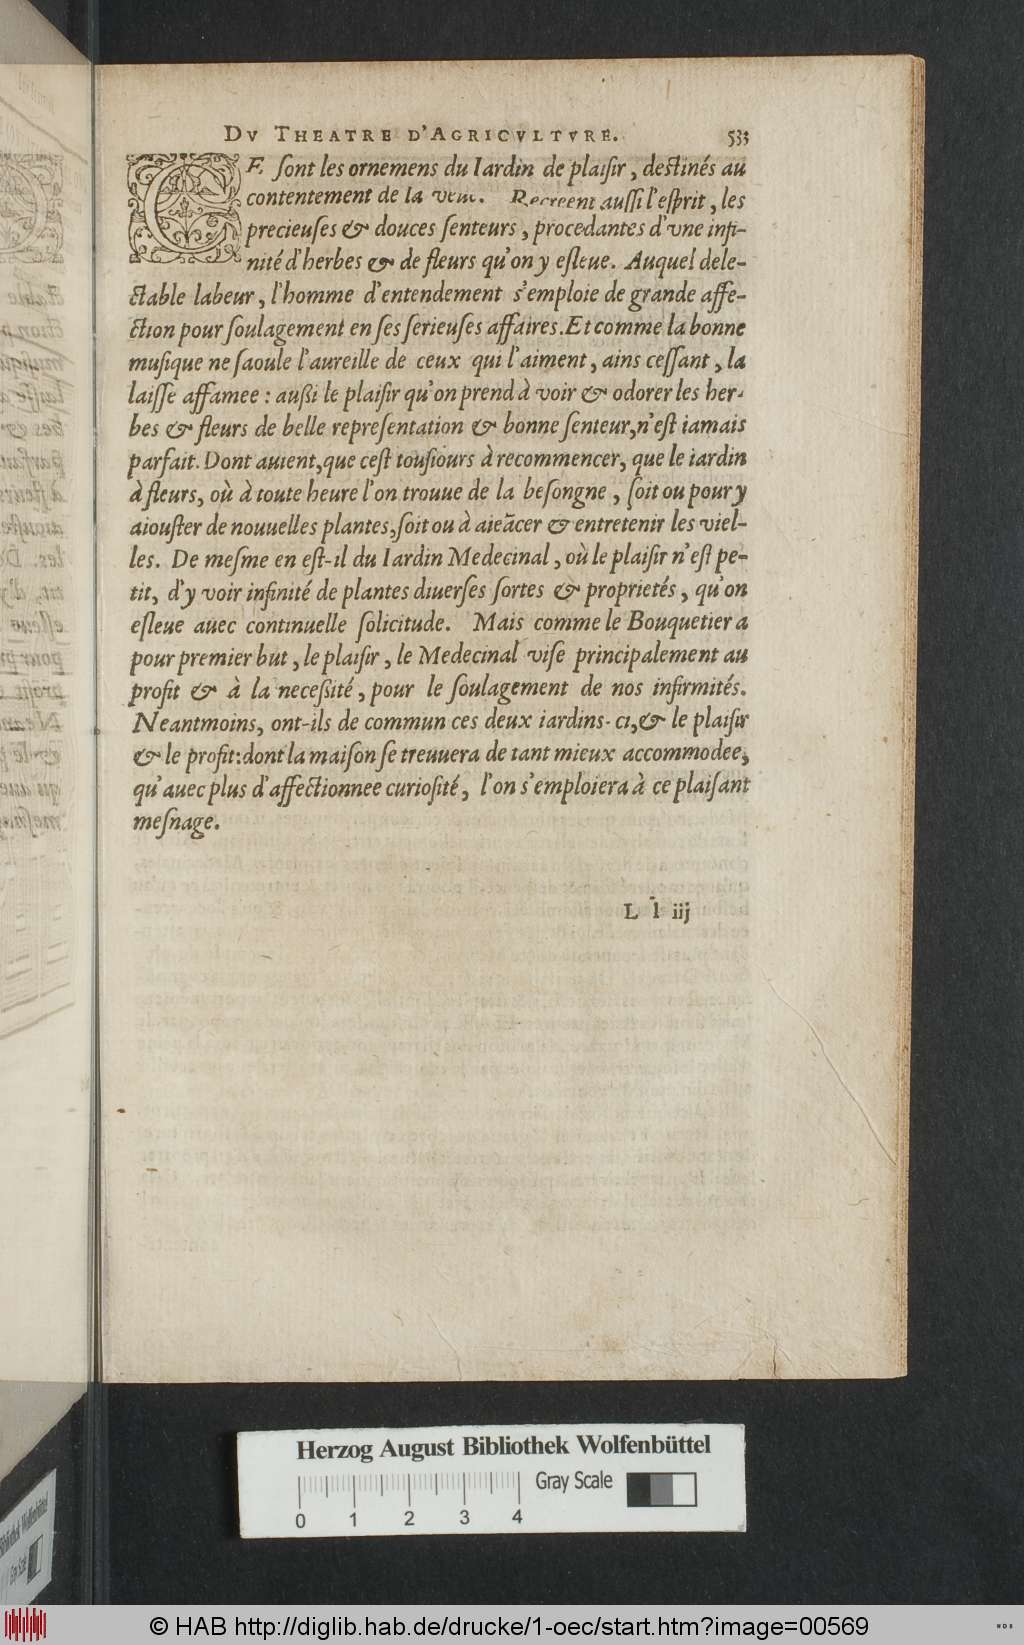 DV THEATRE D'AGRICVLTVRE. 533
CE sont les ornemens du Iardin de plaisir, destinés au
contentement de la veuë. Recreent aussi l'esprit, les
precieuses & douces senteurs, procedantes d'vne infi-
nité d'herbes & de fleurs qu'on y esleue. Auquel dele-
ctable labeur, l'homme d'entendement s'emploie de grande affe-
ction pour soulagement en ses serieuses affaires. Et comme la bonne
musique ne saoule l'aureille de ceux qui l'aiment, ains cessant, la
laisse affamee : aussi le plaisir qu'on prend à voir & odorer les her-
bes & fleurs de belle representation & bonne senteur, n'est iamais
parfait. Dont auient, que cest tousiours à recommencer, que le iardin
à fleurs, où à toute heure l'on trouue de la besongne, soit ou pour y
aiouster de nouuelles plantes, soit ou à aieãcer & entretenir les viel-
les. De mesme en est-il du Iardin Medecinal, où le plaisir n'est pe-
tit, d'y voir infinité de plantes diuerses sortes & proprietés, qu'on
esleue auec continuelle solicitude. Mais comme le Bouquetier a
pour premier but, le plaisir, le Medecinal vise principalement au
profit & à la necessité, pour le soulagement de nos infirmités.
Neantmoins, ont-ils de commun ces deux iardins-ci, & le plaisir
& le profit: dont la maison se treuuera de tant mieux accommodee,
qu'auec plus d'affectionnee curiosité, l'on s'emploiera à ce plaisant
mesnage.
L l iij
Herzog August Bibliothek Wolfenbüttel
Gray Scale
0 1 2 3 4
© HAB http://diglib.hab.de/drucke/1-oec/start.htm?image=00569